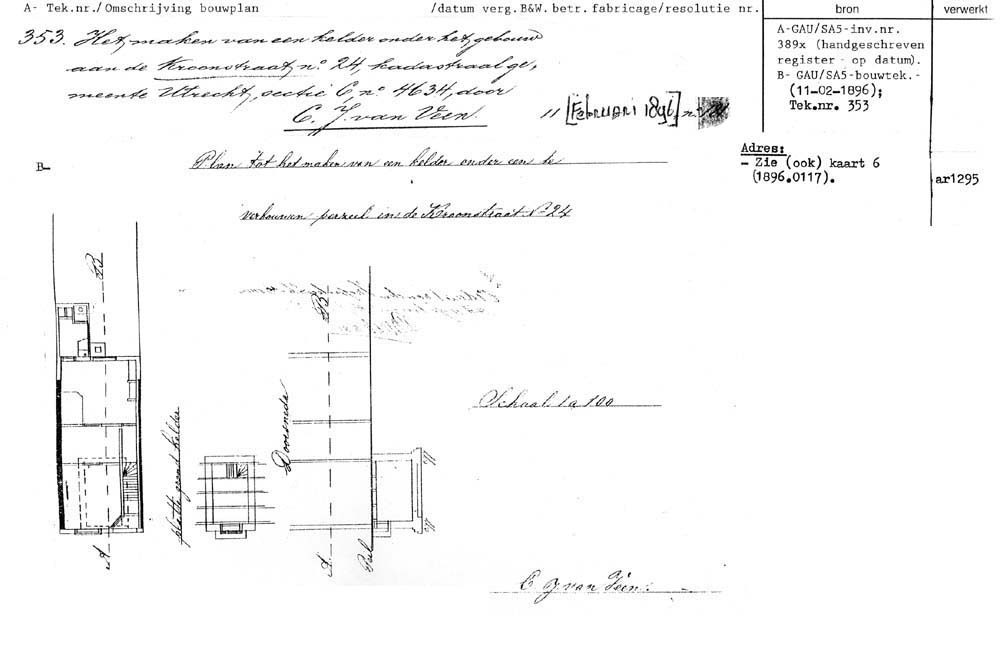 A- Tek.nr./Omschrijving bouwplan /datum verg.B&W.betr.fabricage/resolutie nr. bron verwerkt
353. Het maken van een kelder onder het gebouw
aan de Kroonstraat, no 24, kadastraal ge,
meente Utrecht, sectie C, no 4634, door
C. J. van Veen.
11 [Februari 1896,
A-GAU/SA5-inv.nr.
389x (handgeschreven
register - op datum).
B- GAU/SA5-bouwtek.-
(11-02-1896);
Tek.nr. 353
Adres:
- Zie (ook) kaart 6
(1896.0117).
ar1295
B-
Plan tot het maken van een kelder onder een te
verbouwen perzeel in de Kroonstraat No 24
B
B
Schaal 1 a 100
platte grond kelder
Doorsnede
A
A
Peil
C J van Veen.